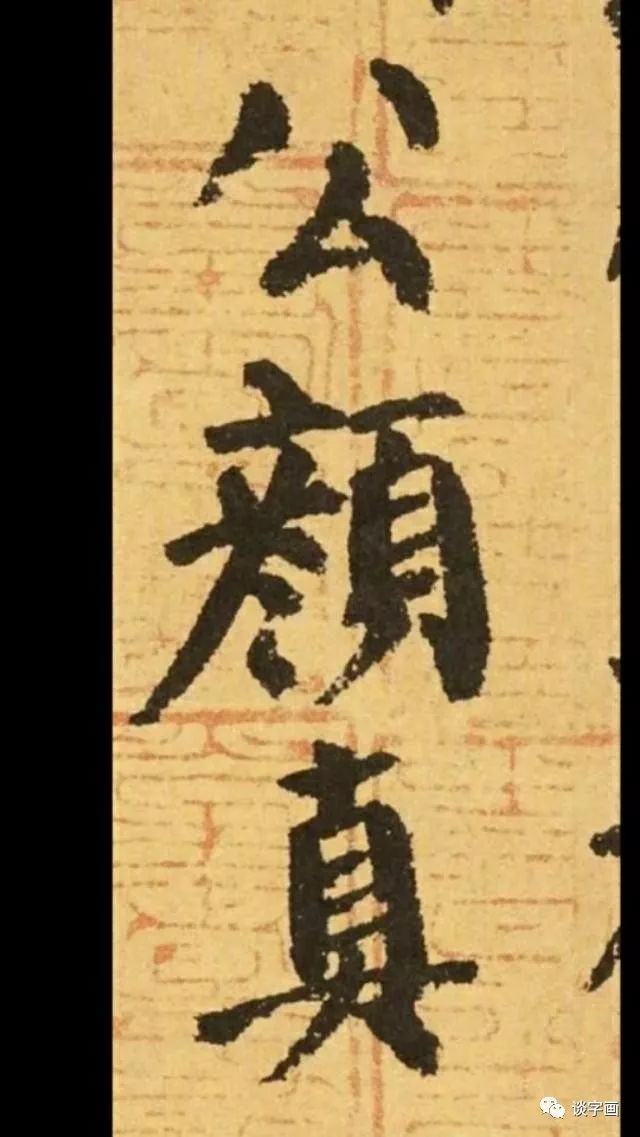 公顔真
谈字画